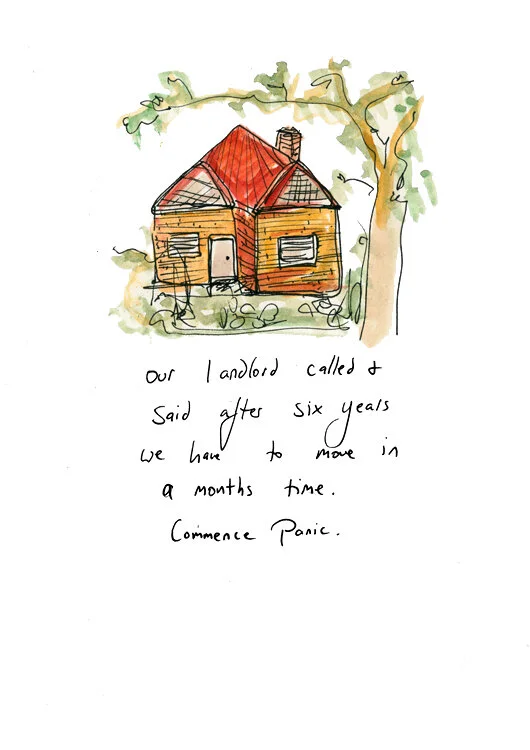 our landlord called &
said after six years
we have to move in
a months time.
Commence Panic.